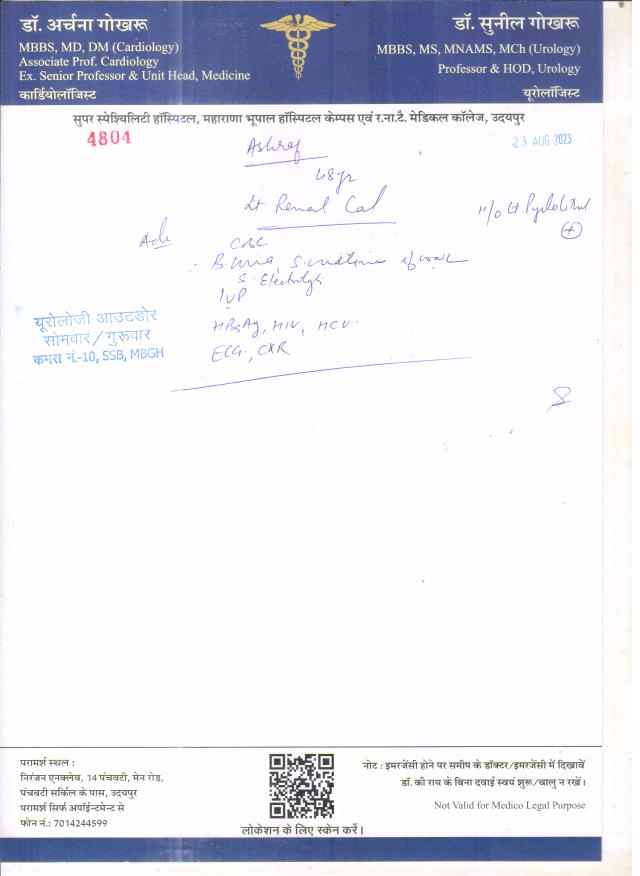 डॉ. अर्चना गोखरू
MBBS, MD, DM (Cardiology)
Associate Prof. Cardiology
Ex. Senior Professor & Unit Head, Medicine
कार्डियोलॉजिस्ट
डॉ. सुनील गोखरू
MBBS, MS, MNAMS, MCh (Urology)
Professor & HOD, Urology
यूरोलॉजिस्ट
सुपर स्पेश्यिलिटी हॉस्पिटल, महाराणा भूपाल हॉस्पिटल केम्पस एवं र.ना.टै. मेडिकल कॉलेज, उदयपुर
4804
23 AUG 2023
Ashraf
48yr
Lt Renal Cal
H/o Lt Pyelolitho
+
Adv
CBC
B. Urea, S. creatinine
S. Electrolytes
IVP
HBsAg, HIV, HCV
ECG, CXR
यूरोलोजी आउटडोर
सोमवार/गुरूवार
कमरा नं.-10, SSB, MBGH
परामर्श स्थल :
निरंजन एनक्लेव, 14 पंचवटी, मेन रोड,
पंचवटी सर्किल के पास, उदयपुर
परामर्श सिर्फ अपॉईन्टमेन्ट से
फोन नं.: 7014244599
लोकेशन के लिए स्केन करें।
नोट : इमरजेंसी होने पर समीप के डॉक्टर/इमरजेंसी में दिखावें
डॉ. की राय के बिना दवाई स्वयं शुरू/चालु न रखें।
Not Valid for Medico Legal Purpose